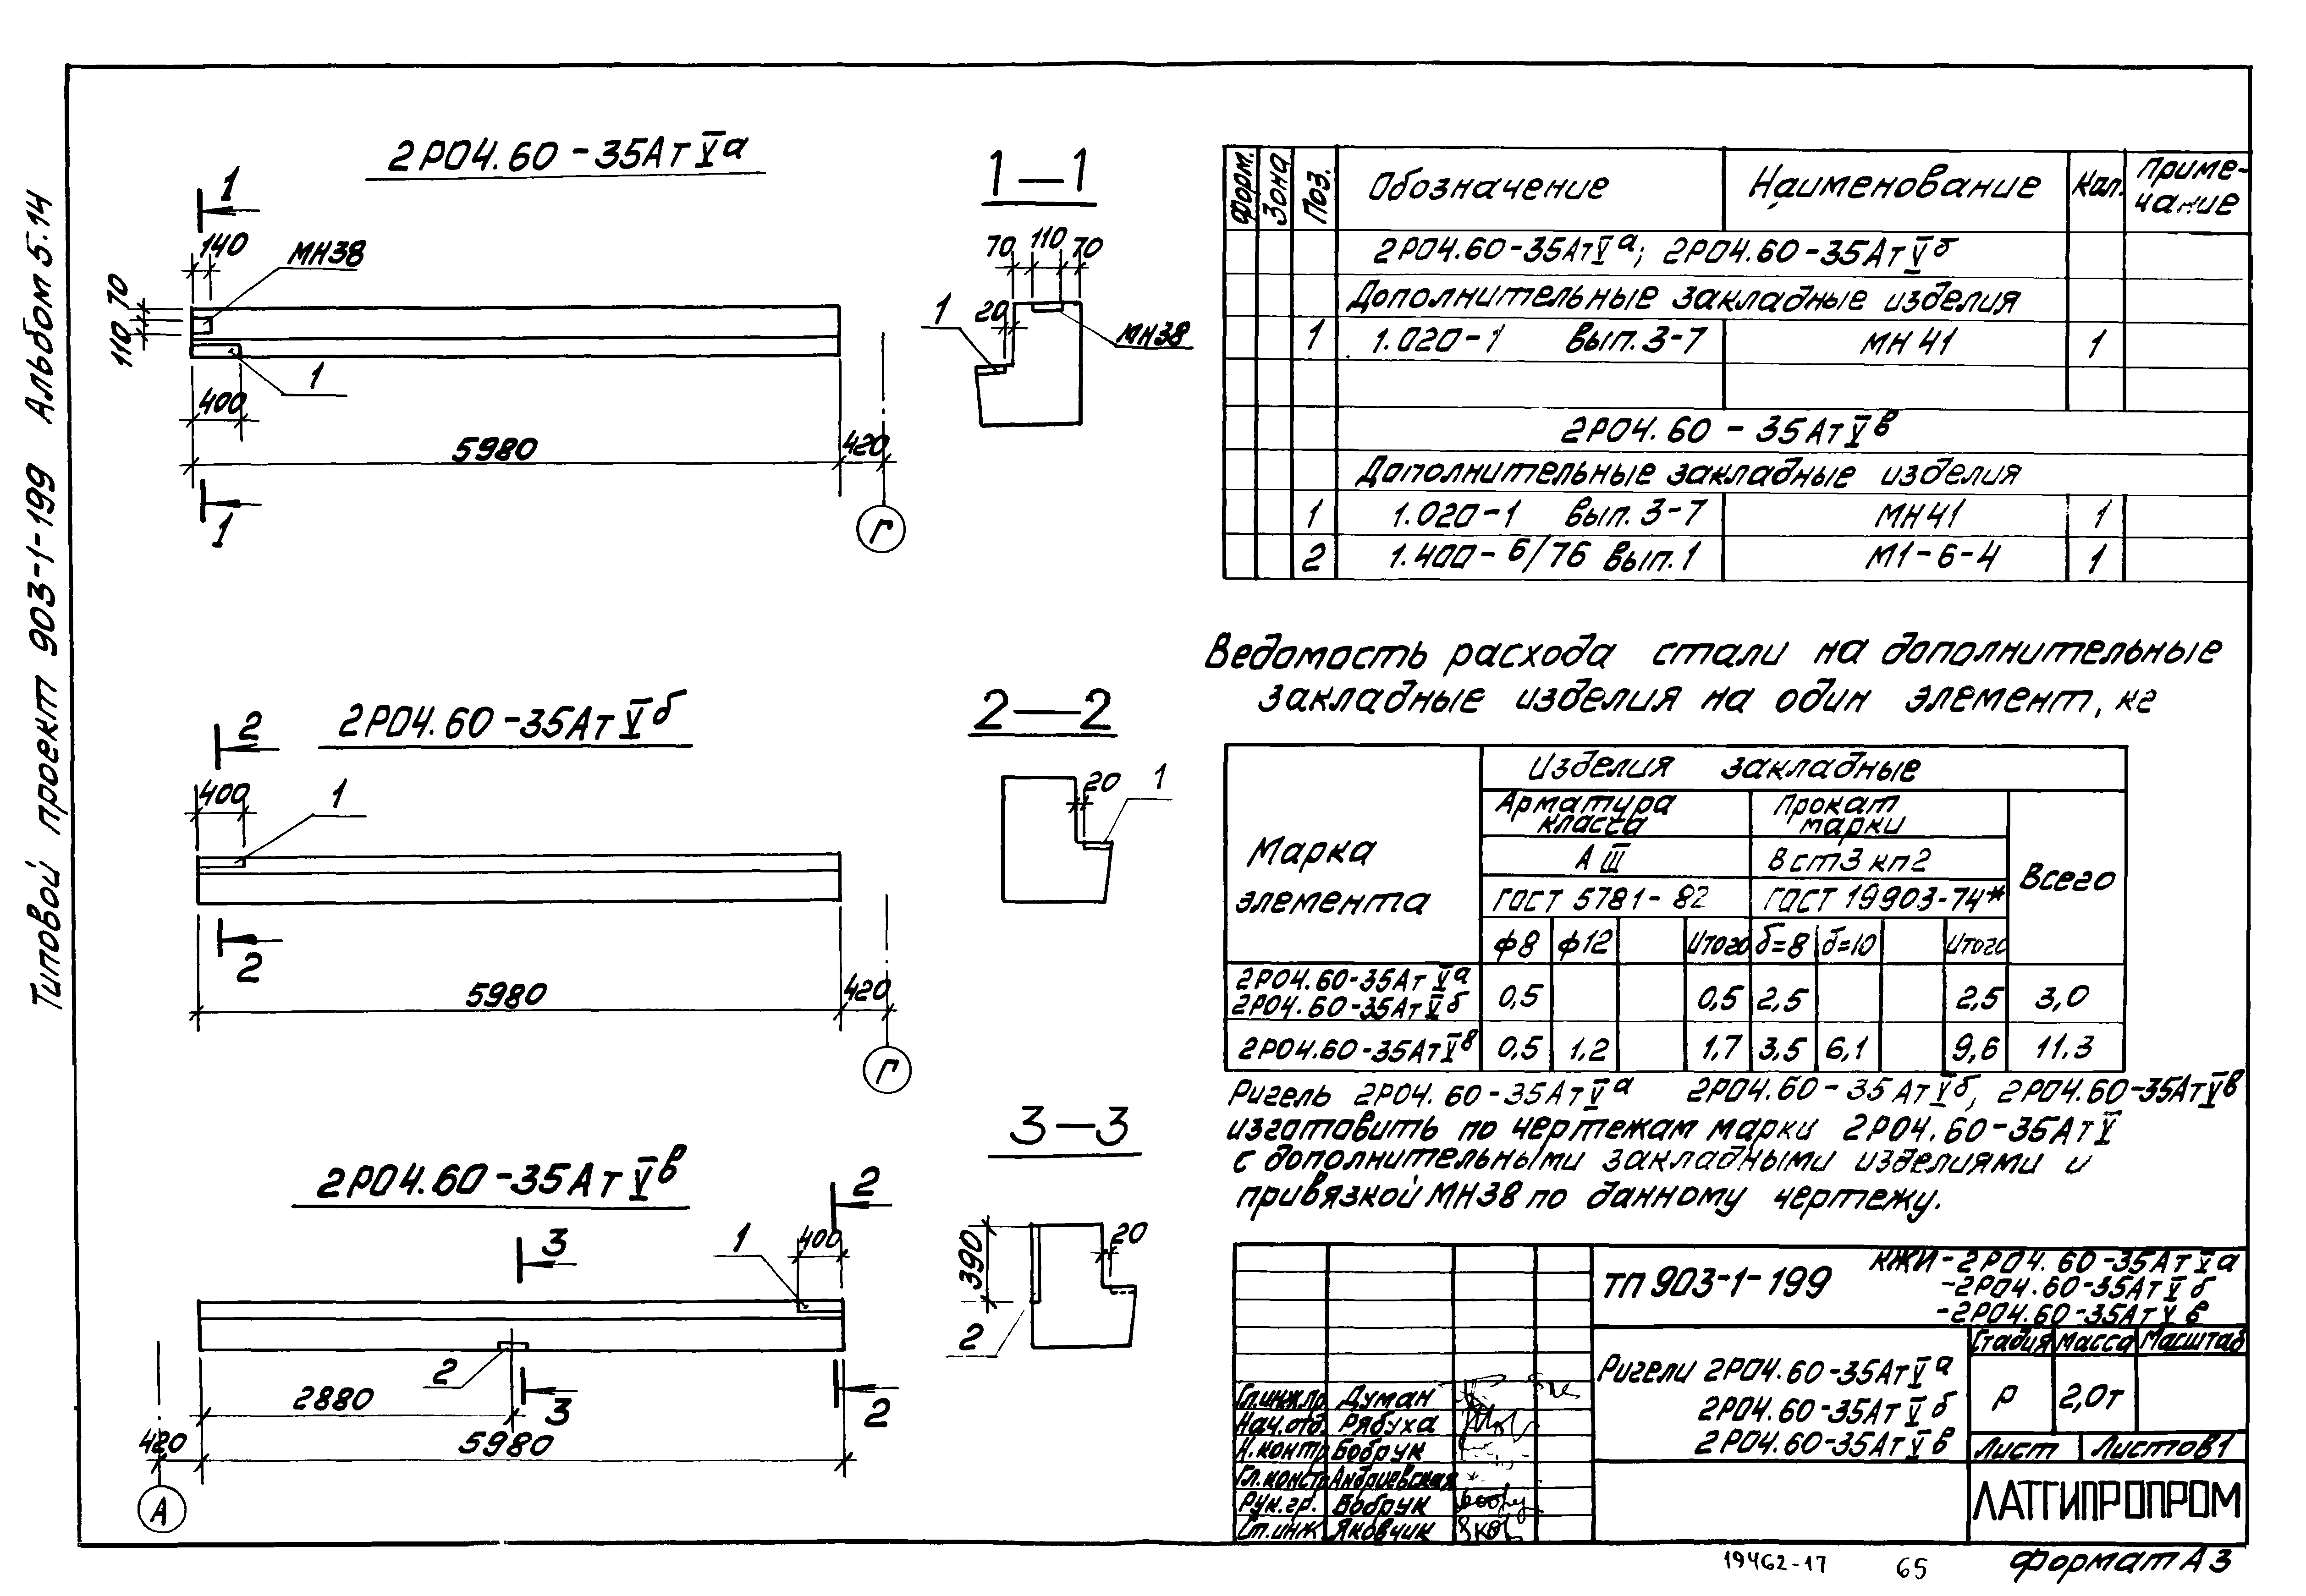 Типовой проект 903-1-199 Альбом 5.14
2РО4.60-35АтVа
1 1
140
МН38
70
110
1
400
5980
420
Г
1-1
70 110 70
20
1
МН38
2РО4.60-35АтVб
2 2
400
1
5980
420
Г
2-2
20
1
2РО4.60-35АтVв
3 3
2 2
1
400
2
2880
420
5980
А
3-3
390
20
2
Форм. Зона Поз. Обозначение Наименование Кол. Приме-
чание
2РО4.60-35АтVа; 2РО4.60-35АтVб
Дополнительные закладные изделия
1 1.020-1 вып.3-7 МН41 1
2РО4.60-35АтVв
Дополнительные закладные изделия
1 1.020-1 вып.3-7 МН41 1
2 1.400-6/76 вып.1 М1-6-4 1
Ведомость расхода стали на дополнительные
закладные изделия на один элемент, кг
Марка элемента
Изделия закладные
Арматура класса Прокат марки
АIII Вст3кп2 Всего
ГОСТ 5781-82 ГОСТ 19903-74*
ф8 ф12 Итого б=8 б=10 Итого
2РО4.60-35АтVа
2РО4.60-35АтVб 0,5 0,5 2,5 2,5 3,0
2РО4.60-35АтVв 0,5 1,2 1,7 3,5 6,1 9,6 11.3
Ригель 2РО4.60-35АтVа 2РО4.60-35АтVб, 2РО4.60-35АтVв
изготовить по чертежам марки 2РО4.60-35АтV
с дополнительными закладными изделиями и
привязкой МН38 по данному чертежу.
ТП 903-1-199
КЖИ-2РО4.60-35АтVа
-2РО4.60-35АтVб
-2РО4.60-35АтVв
Ригели 2РО4.60-35АтVа
2РО4.60-35АтVб
2РО4.60-35АтVв
Стадия Масса Масштаб
Р 2,0т
Лист Листов 1
ЛАТГИПРОПРОМ
Гл.инж.пр Думан
Нач.отд. Рябуха
Н.контр Бобрук
Гл.констр Андриевская
Рук.гр. Бобрук
Ст.инж. Яковчик
19462-17 65
Формат А3